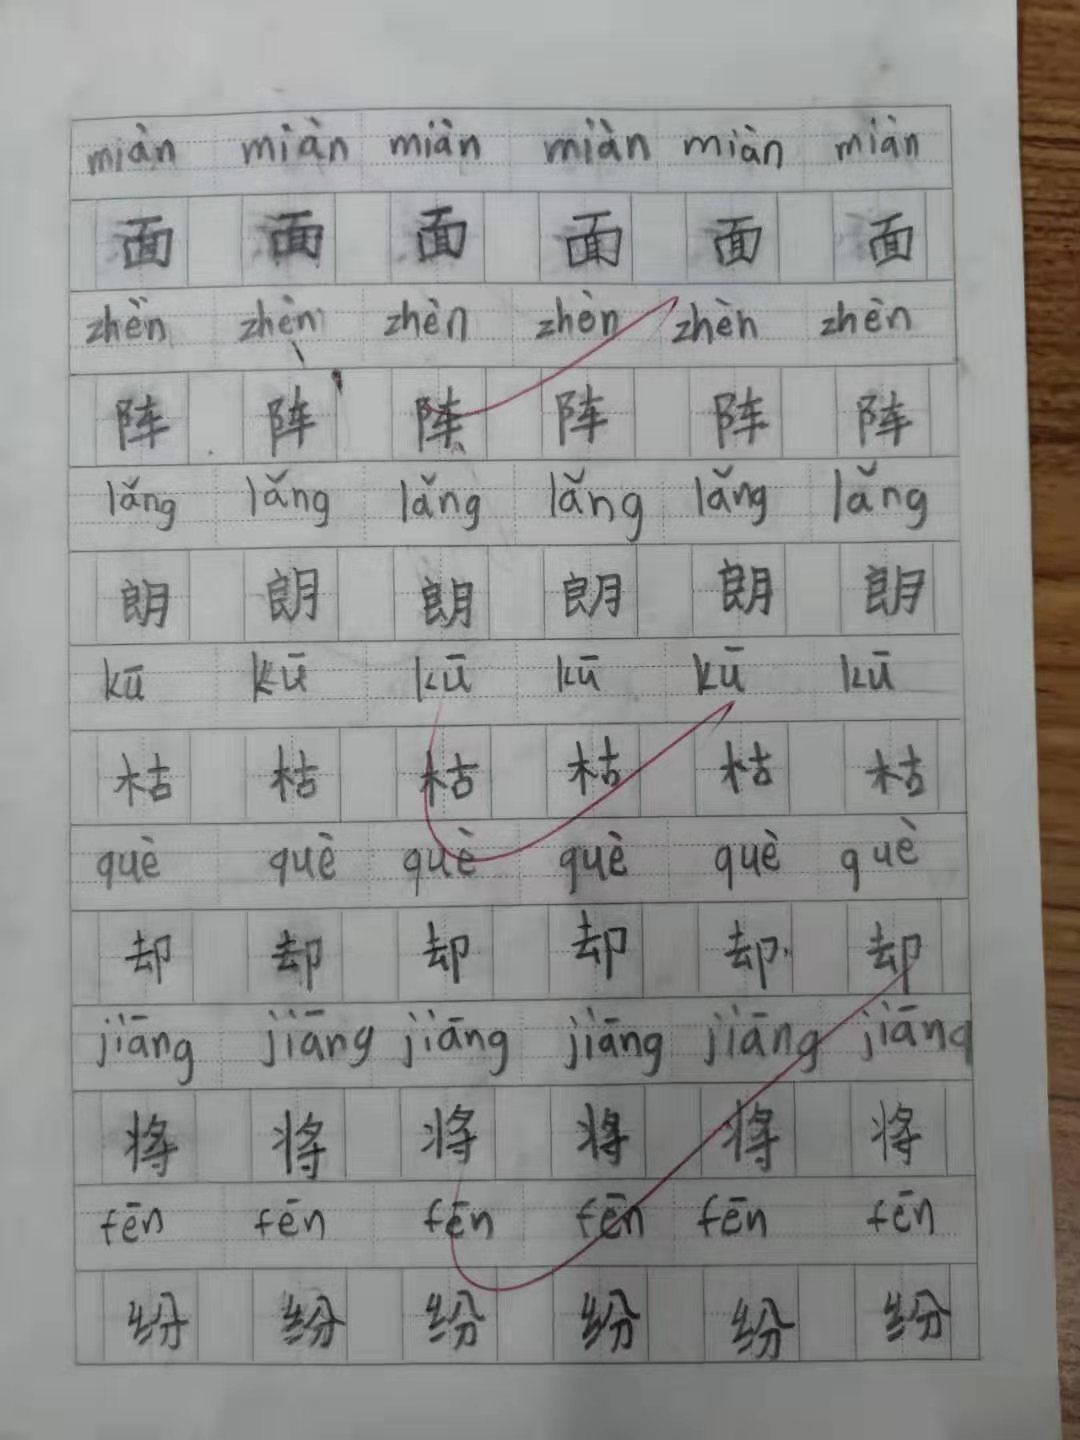 miàn miàn miàn miàn miàn miàn
面 面 面 面 面 面
zhèn zhèn zhèn zhèn zhèn zhèn
阵 阵 阵 阵 阵 阵
lǎng lǎng lǎng lǎng lǎng lǎng
朗 朗 朗 朗 朗 朗
kū kū kū kū kū kū
枯 枯 枯 枯 枯 枯
què què què què què què
却 却 却 却 却 却
jiāng jiāng jiāng jiāng jiāng jiāng
将 将 将 将 将 将
fēn fēn fēn fēn fēn fēn
纷 纷 纷 纷 纷 纷